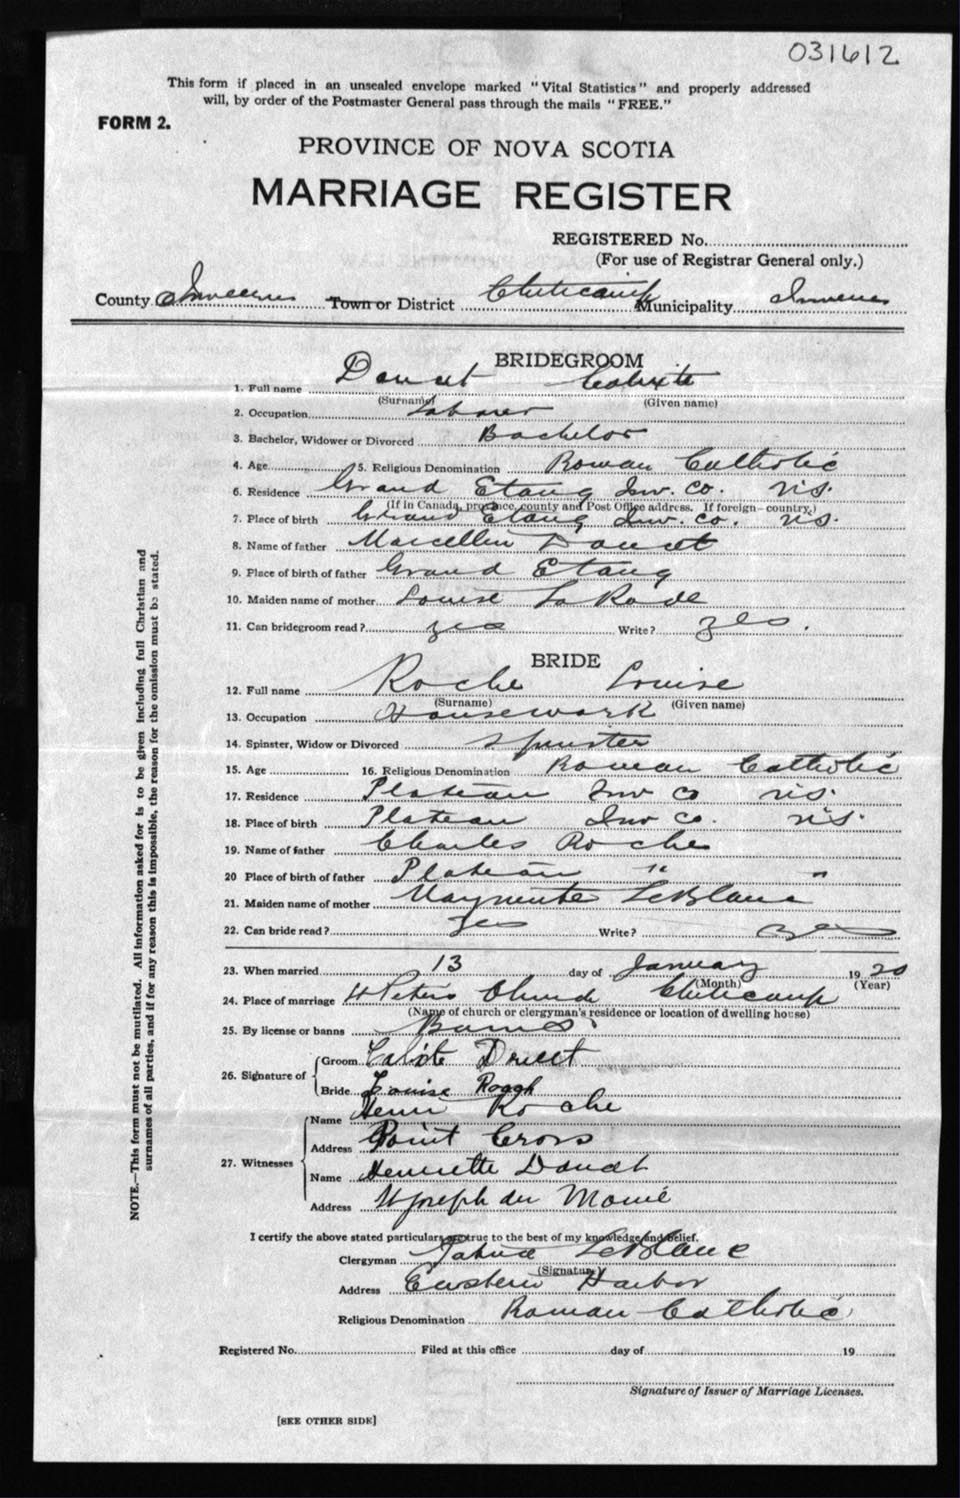 031612
This form if placed in an unsealed envelope marked "Vital Statistics" and properly addressed
will, by order of the Postmaster General pass through the mails "FREE."
FORM 2.
PROVINCE OF NOVA SCOTIA
MARRIAGE REGISTER
REGISTERED No.
(For use of Registrar General only.)
County Inverness Town or District Cheticamp Municipality Inverness
BRIDEGROOM
1. Full name Doucet Calixte
(Surname) (Given name)
2. Occupation Laborer
3. Bachelor, Widower or Divorced Bachelor
4. Age 5. Religious Denomination Roman Catholic
6. Residence Grand Etang Inv. Co. N.S.
(If in Canada, province, county and Post Office address. If foreign-country.)
7. Place of birth Grand Etang Inv. Co. N.S.
8. Name of father Marcellin Doucet
9. Place of birth of father Grand Etang
10. Maiden name of mother Louise LaRade
11. Can bridegroom read? yes Write? yes.
BRIDE
12. Full name Roche Louise
(Surname) (Given name)
13. Occupation Housework
14. Spinster, Widow or Divorced Spinster
15. Age 16. Religious Denomination Roman Catholic
17. Residence Plateau Inv Co N.S.
18. Place of birth Plateau Inv Co. N.S.
19. Name of father Charles Roche
20 Place of birth of father Plateau " "
21. Maiden name of mother LeBlanc
22. Can bride read? Yes Write? Yes
23. When married 13 day of January 1920
(Month) (Year)
24. Place of marriage St Peters Church Cheticamp
(Name of church or clergyman's residence or location of dwelling house)
25. By license or banns Banns
26. Signature of Groom Doucet
Bride Louise Roach
27. Witnesses Name Henri Roche
Address Point Cross
Name Henriette Doucet
Address St Joseph du Moine
I certify the above stated particulars are true to the best of my knowledge and belief.
Clergyman LeBlanc
(Signature)
Address Eastern Harbor
Religious Denomination Roman Catholic
Registered No. Filed at this office day of 19
Signature of Issuer of Marriage Licenses.
[SEE OTHER SIDE]
NOTE.—This form must not be mutilated. All information asked for is to be given including full Christian and
surnames of all parties, and if for any reason this is impossible, the reason for the omission must be stated.